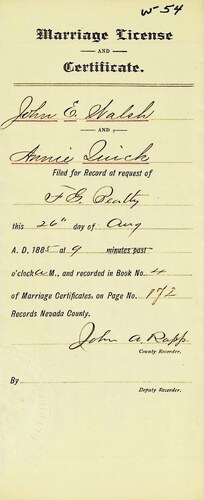 W-54
Marriage License
AND
Certificate.
John E. Walsh
AND
Annie Quick
Filed for Record at request of
F G Beatty
this 26th day of Aug
A. D, 1885 at 9 minutes past
o'clock a M., and recorded in Book No. 4
of Marriage Certificates, on Page No. 172
Records Nevada County.
John A. Rapp
County Recorder.
By
Deputy Recorder.